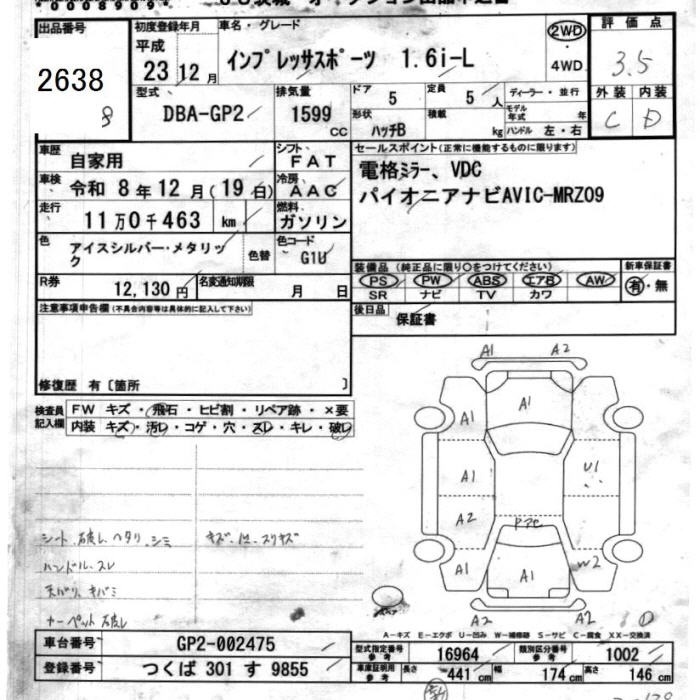 00008909
出品番号
2638
8
初度登録年月
平成
23 12月
車名・グレード
インプレッサスポーツ 1.6i-L
2WD
・
4WD
評価点
3.5
外装 内装
C D
型式
DBA-GP2
排気量
1599
CC
ドア 5
形状 ハッチB
定員 5 人
積載 kg
ディーラー・並行
モデル年式 年
ハンドル 左・右
車歴 自家用
シフト FAT
車検 令和 8年12月(19日)
冷房 AAC
走行 11万0千463 km
燃料 ガソリン
色 アイスシルバー・メタリック
色替
色コード G1U
R券 12,130円
名変通知期限 月 日
セールスポイント(正常に機能するものに限ります)
電格ミラー、VDC
パイオニアナビAVIC-MRZ09
装備品(純正品に限り○をつけてください)
PS PW ABS エアB AW
SR ナビ TV カワ
新車保証書
有・無
後日品
保証書
注意事項申告欄(不具合内容等は具体的に記入して下さい)
修復歴 有〔箇所 〕
検査員記入欄
FW キズ・飛石・ヒビ割・リペア跡・×要
内装 キズ・汚レ・コゲ・穴・スレ・キレ・破レ
シート 破レ ヘタリ シミ
ハンドル スレ
天バリ キバミ
カーペット 破レ
A1 A2
A1 A1
A1 U1
A2
A1 A1 W2
A2 A2
A-キズ E-エクボ U-凹み W-補修跡 S-サビ C-腐食 XX-交換済
車台番号 GP2-002475
登録番号 つくば 301 す 9855
型式指定番号 参考 16964
類別区分番号 参考 1002
車庫証明用 参考 長さ 441 cm 幅 174 cm 高さ 146 cm